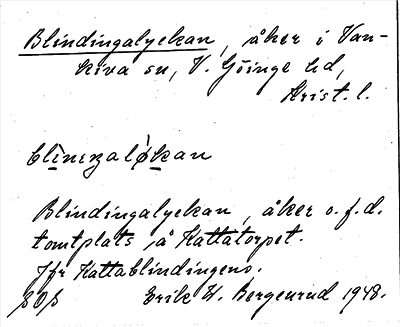 Blindingalyckan, åker i Van-
kiva sn, V. Göinge hd,
Krist. l.
Blindingalyckan, åker o. f. d.
tomtplats å Kattatorpet.
Jfr Kattablindingens.
Erik W. Bergenrud 1948.